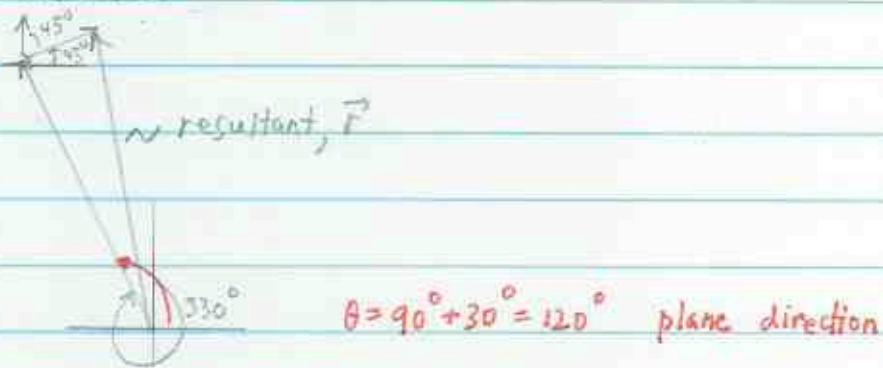 45°
45°
~ resultant, r⃗
330°
θ = 90° + 30° = 120° plane direction